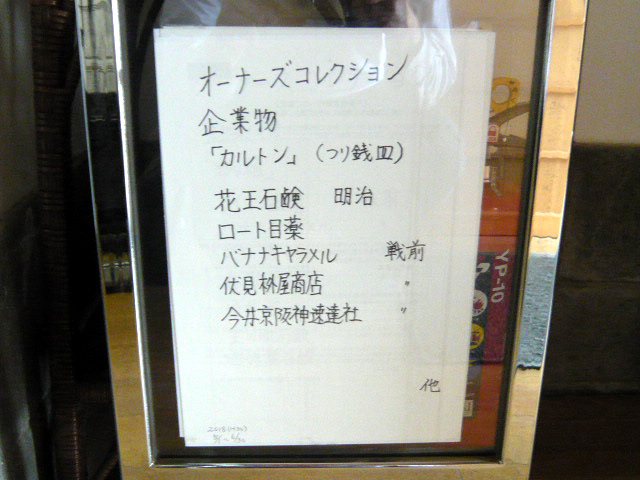 オーナーズコレクション
企業物
「カルトン」（つり銭皿）
花王石鹸 明治
ロート目薬
バナナキャラメル 戦前
伏見桝屋商店 〃
今井京阪神速達社 〃
他
YP-10